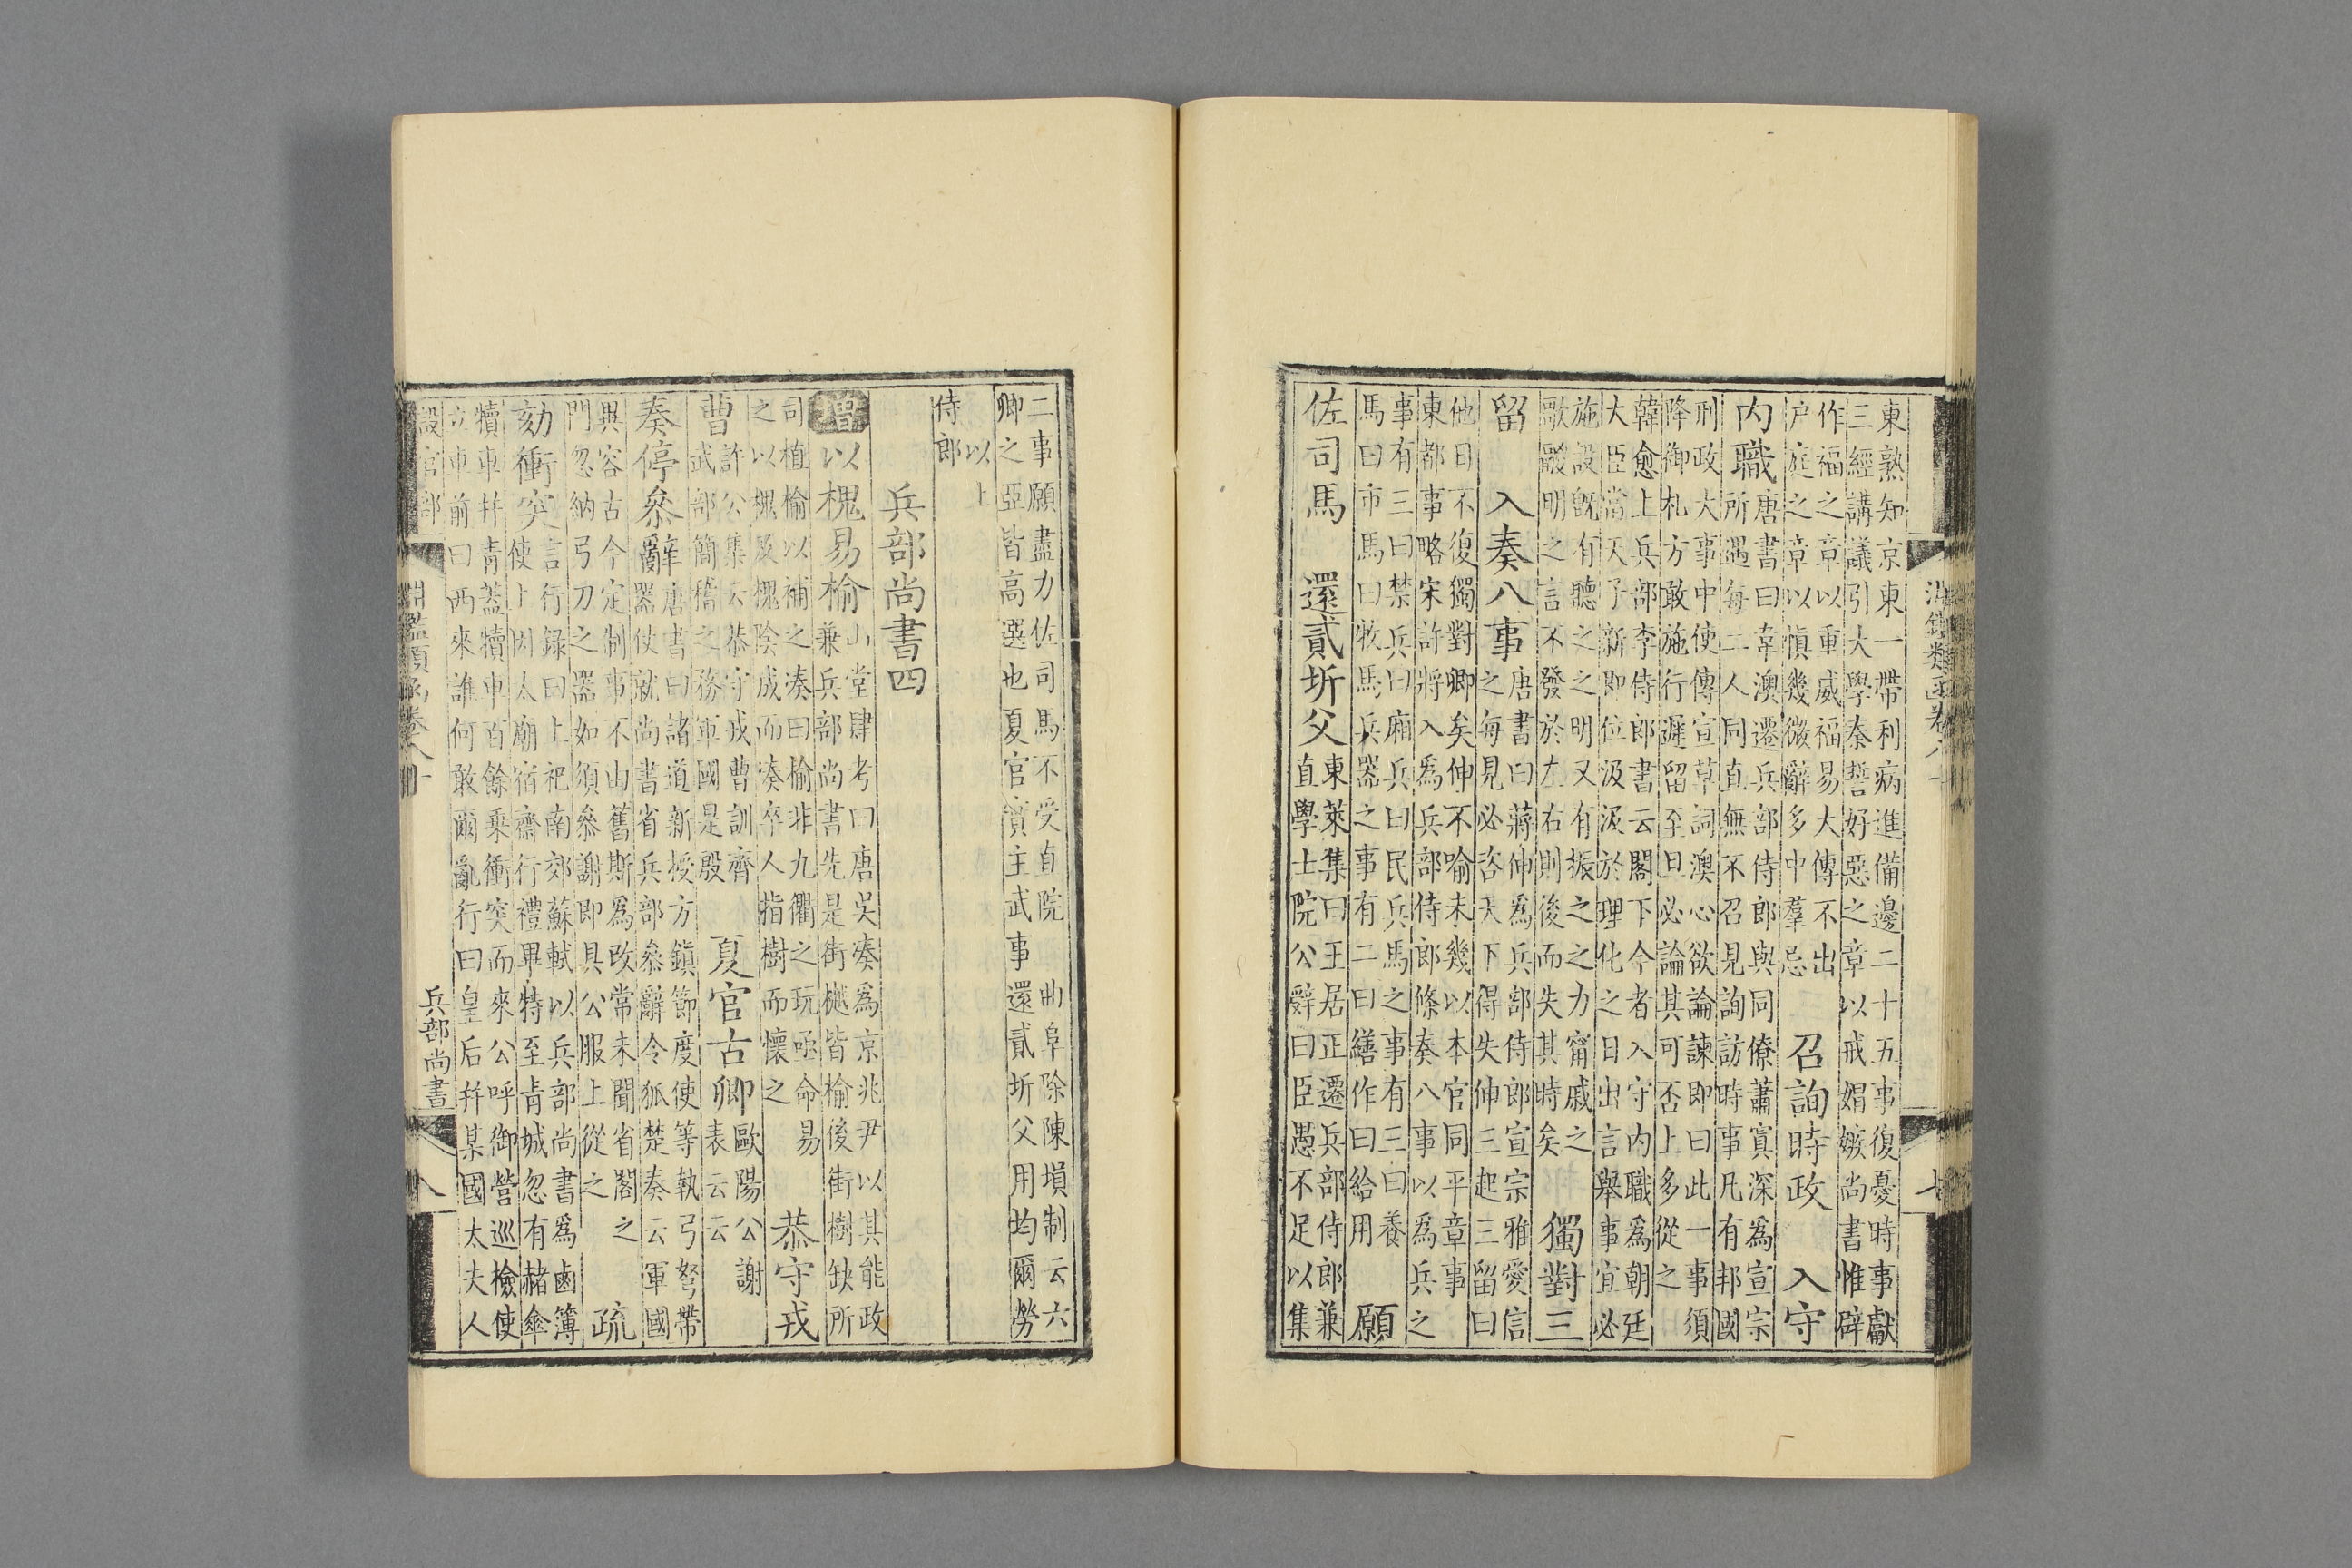 淵鑑類函卷八十
七
東熟知京東一帶利病進備邊二十五事復憂時事獻
三經講議引大學秦誓好惡之章以戒媢嫉尚書惟辟
作福之章以重威福易大傳不出
戶庭之章以慎幾微辭多中羣忌
召詢時政　入守
內職
唐書曰韋澳遷兵部侍郎與同僚蕭寘深為宣宗
所遇每二人同直無不召見詢訪時事凡有邦國
刑政大事中使傳宣草詞澳心欲論諫即曰此一事須
降御札方敢施行遲留至旦必論其可否上多從之
韓愈上兵部李侍郎書云閣下今者入守內職為朝廷
大臣當天子新即位汲汲於理化之日出言舉事宜必
施設既有聽之之明又有振之之力甯戚之
歌鬷明之言不發於左右則後而失其時矣
獨對三
留　入奏八事
唐書曰蔣伸為兵部侍郎宣宗雅愛信
之每見必咨天下得失伸三起三留曰
他日不復獨對卿矣伸不喻未幾以本官同平章事
東都事略宋許將入為兵部侍郎條奏八事以為兵之
事有三曰禁兵曰廂兵曰民兵馬之事有三曰養
馬曰市馬曰牧馬兵器之事有二曰繕作曰給用
願
佐司馬　還貳圻父
東萊集曰王居正遷兵部侍郎兼
直學士院公辭曰臣愚不足以集
二事願盡力佐司馬不受直院　曲阜除陳塤制云六
卿之亞皆高選也夏官實主武事還貳圻父用均爾勞
以上
侍郎
兵部尚書四
增　以槐易榆
山堂肆考曰唐吳湊為京兆尹以其能政
兼兵部尚書先是街樾皆榆後街樹缺所
司植榆以補之湊曰榆非九衢之玩亟命易
之以槐及槐陰成而湊卒人指樹而懷之
恭守戎
曹
許公集云恭守戎曹訓齊
武部簡稽之務軍國是殷
夏官古卿
歐陽公謝
表云云
奏停叅辭
唐書曰諸道新授方鎮節度使等執弓弩帶
器仗就尚書省兵部叅辭令狐楚奏云軍國
異容古今定制事不由舊斯為改常未聞省閣之
門忽納弓刀之器如須叅謝即具公服上從之
疏
劾衝突
言行錄曰上祀南郊蘇軾以兵部尚書為鹵簿
使上因太廟宿齋行禮畢特至青城忽有赭傘
犢車幷青蓋犢車百餘乘衝突而來公呼御營巡檢使
立車前曰西來誰何敢爾亂行曰皇后幷某國太夫人
設官部
淵鑑類函卷八十
兵部尚書
八